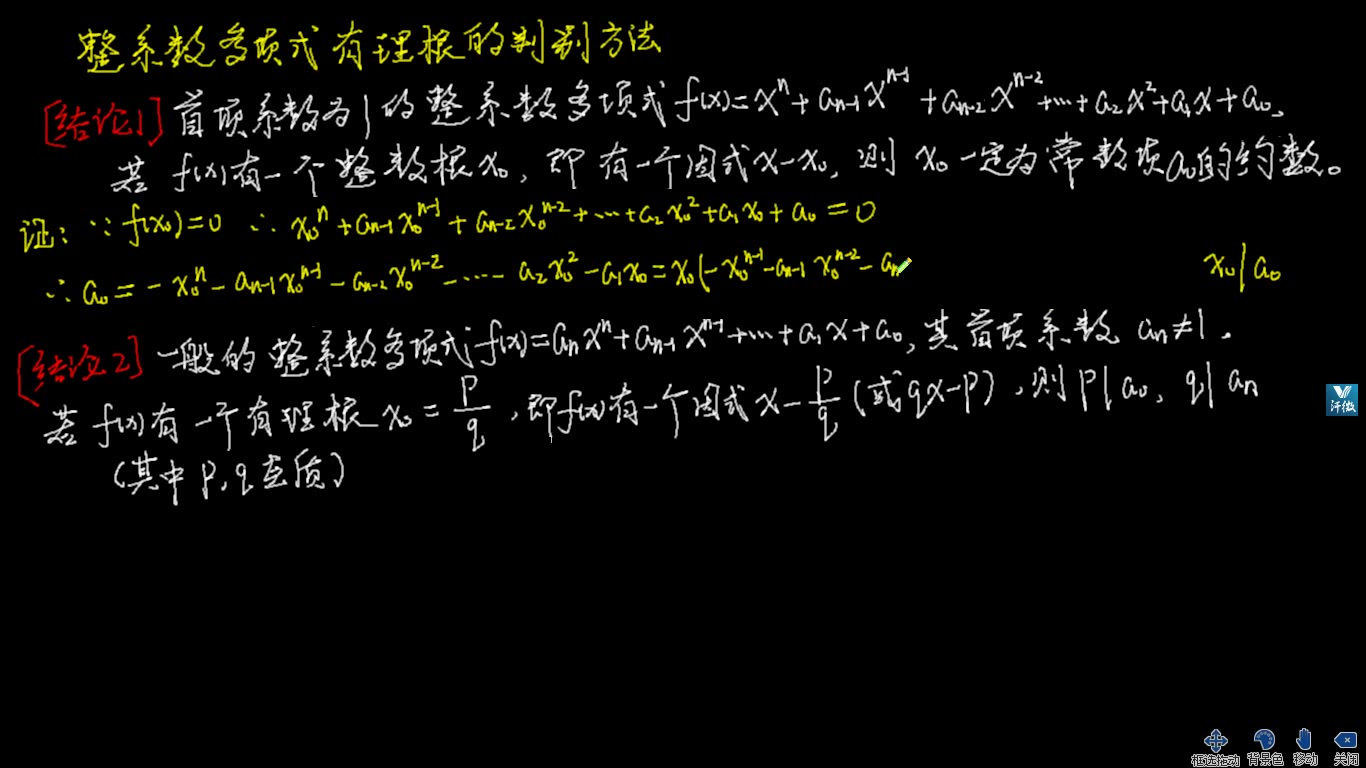 整系数多项式有理根的判别方法
[结论1] 首项系数为1的整系数多项式 f(x)=xⁿ+aₙ₋₁xⁿ⁻¹+aₙ₋₂xⁿ⁻²+…+a₂x²+a₁x+a₀,
若 f(x)有一个整数根x₀, 即有一个因式x-x₀, 则 x₀一定为常数项a₀的约数。
证: ∵ f(x₀)=0 ∴ x₀ⁿ+aₙ₋₁x₀ⁿ⁻¹+aₙ₋₂x₀ⁿ⁻²+…+a₂x₀²+a₁x₀+a₀=0
∴ a₀=-x₀ⁿ-aₙ₋₁x₀ⁿ⁻¹-aₙ₋₂x₀ⁿ⁻²-…a₂x₀²-a₁x₀=x₀(-x₀ⁿ⁻¹-aₙ₋₁x₀ⁿ⁻²-aₙ x₀|a₀
[结论2] 一般的整系数多项式f(x)=aₙxⁿ+aₙ₋₁xⁿ⁻¹+…+a₁x+a₀, 其首项系数 aₙ≠1.
若 f(x)有一个有理根x₀=p/q, 即f(x)有一个因式x-p/q(或qx-p), 则p|a₀, q|aₙ
(其中p,q互质)
汗微
框选拖动 背景色 移动 关闭